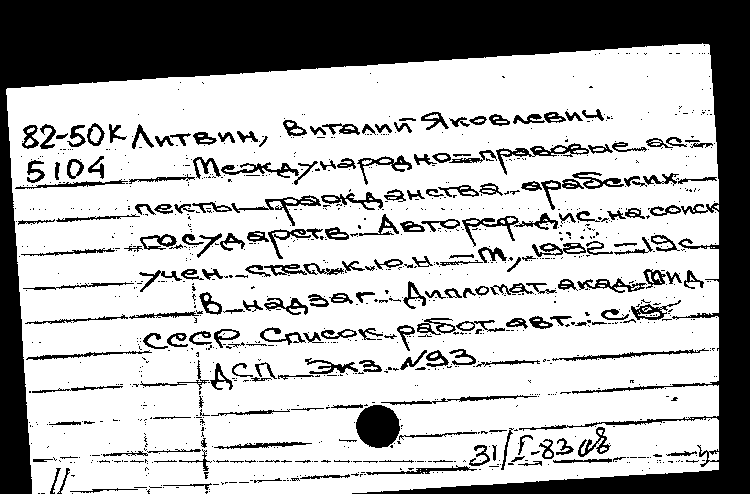 82-50К Литвин, Виталий Яковлевич.
5104 Международно-правовые ас-
пекты гражданства арабских
государств: Автореф. дис. на соиск
учен. степ. к.ю.н. – М., 1980 – 19 с.
В надзаг.: Дипломат. акад. МИД
СССР Список работ авт.: с. 19
ДСП Экз. №93
31/I-83
11